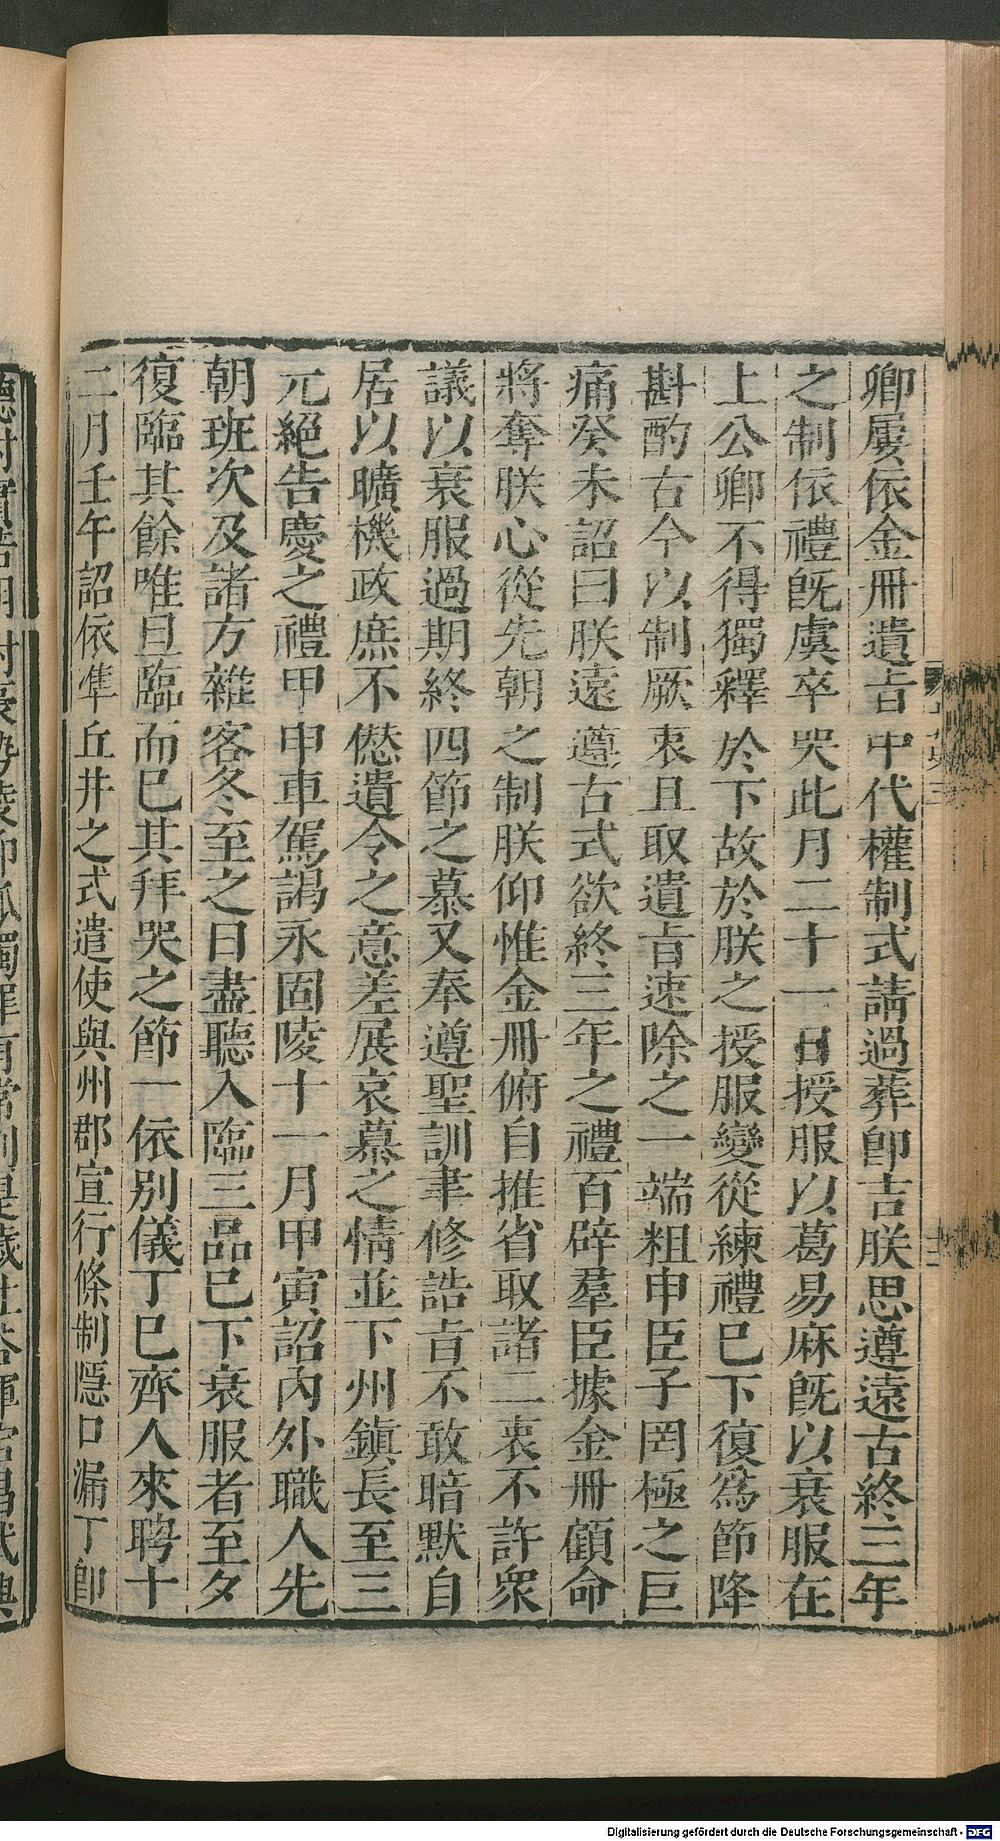 卿屢依金冊遺旨中代權制式請過葬即吉朕思遵遠古終三年
之制依禮旣虞卒哭此月二十一日授服以葛易麻旣以衰服在
上公卿不得獨釋於下故於朕之授服變從練禮巳下復爲節降
斟酌古今以制厥衷且取遺旨速除之一端粗申臣子罔極之巨
痛癸未詔曰朕遠遵古式欲終三年之禮百辟羣臣據金冊顧命
將奪朕心從先朝之制朕仰惟金冊俯自推省取諸二衷不許衆
議以衰服過期終四節之慕又奉遵聖訓聿修誥旨不敢暗默自
居以曠機政庶不愆遺令之意差展哀慕之情並下州鎮長至三
元絕告慶之禮甲申車駕謁永固陵十一月甲寅詔內外職人先
朝班次及諸方雜客冬至之日盡聽入臨三品巳下衰服者至夕
復臨其餘唯旦臨而巳其拜哭之節一依別儀丁巳齊人來聘十
二月壬午詔依準丘井之式遣使與州郡宣行條制隱口漏丁卽
Digitalisierung gefördert durch die Deutsche Forschungsgemeinschaft - DFG